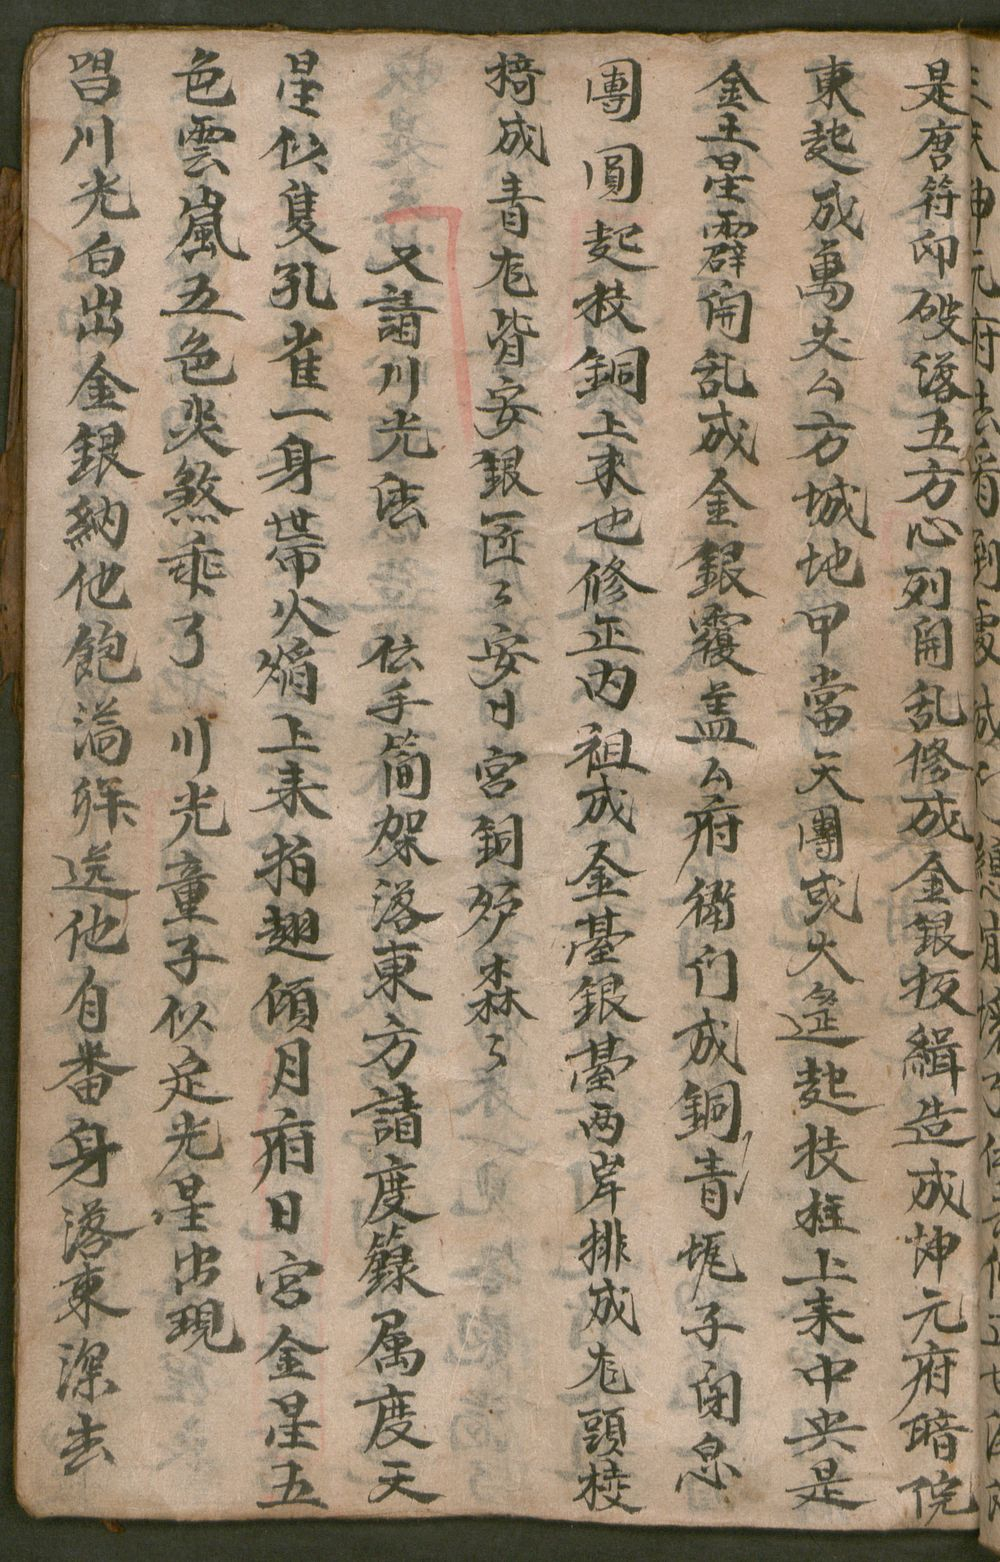 是唐符印破落五方心列開乱修成金銀板緝造成坤元府暗院
東起成萬丈公方城地甲當天團或火逕起枝柱上来中央是
金土星霹開乱成金銀覆盖公府衛门成銅青坭子闭息
團圓起枝銅上来也修正内祖成金臺銀臺两岸排成尨頭棱
椅成青尨皆安銀匠〻安日宮銅炉森〻
又請川光法 伝手简架落東方請度籙属度天
星似隻孔雀一身帶火焰上来拍翅傾月府日宮金星五
色雲嵐五色炎煞乖了 川光童子似足光星出現
唱川光白出金銀納他飽満 送他自番身落東深去